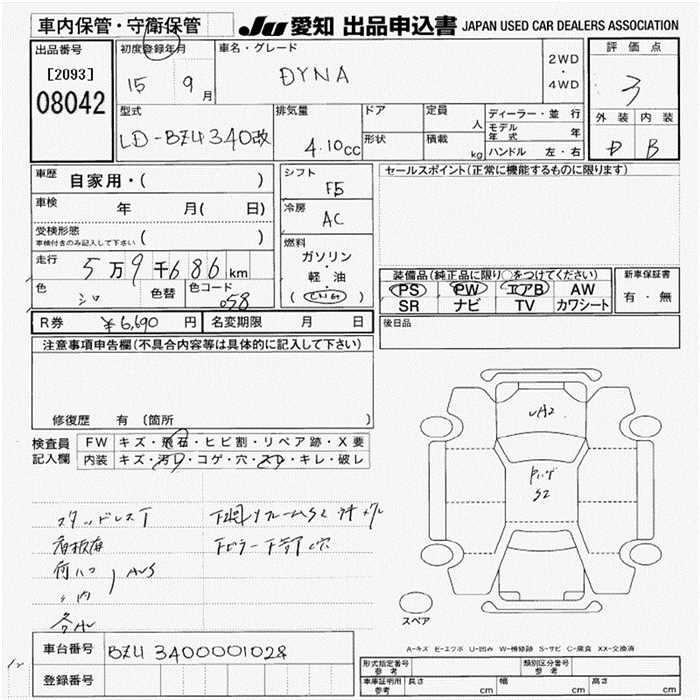 車内保管・守衛保管
JU 愛知 出品申込書 JAPAN USED CAR DEALERS ASSOCIATION
出品番号
[2093]
08042
初度登録年月
15 9月
車名・グレード
DYNA
2WD
・
4WD
評価点
3
外装 内装
D B
型式
LD-BZU340改
排気量
4.10cc
ドア
形状
定員 人
積載 kg
ディーラー・並行
モデル年式 年
ハンドル 左・右
車歴 自家用・( )
車検 年 月( 日)
受検形態
車検付きのみ記入して下さい ( )
走行 5万9千686km
色 シロ 色替 色コード 058
シフト F5
冷房 AC
燃料
ガソリン
・
軽・油
(CNG)
セールスポイント(正常に機能するものに限ります)
装備品(純正品に限り○をつけてください)
PS PW エアB AW
SR ナビ TV カワシート
新車保証書
有・無
R券 ¥6,690円 名変期限 月 日
後日品
注意事項申告欄(不具合内容等は具体的に記入して下さい)
修復歴 有 (箇所 )
検査員記入欄
FW キズ・飛石・ヒビ割・リペア跡・X要
内装 キズ・汚れ・コゲ・穴・スレ・キレ・破レ
スタッドレスT
看板痕
AVS
UA2
S2
スペア
A-キズ E-エクボ U-凹み W-補修跡 S-サビ C-腐食 XX-交換済
車台番号 BZU3400001028
登録番号
形式指定番号 参考
類別区分番号 参考
車庫証明用 参考 長さ cm 幅 cm 高さ cm